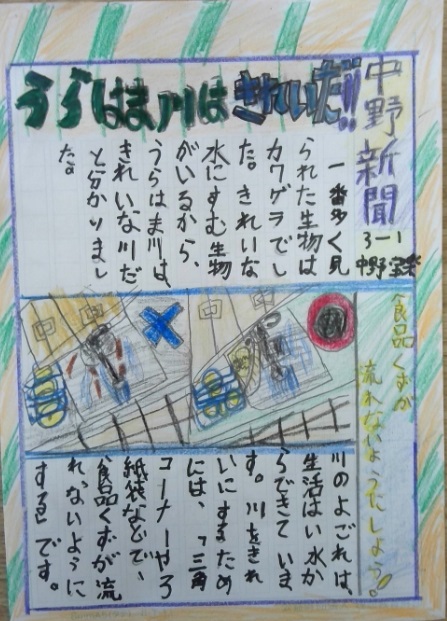 中野新聞
3-1
うらはま川はきれいだ!!
一番多く見
られた生物は
カワゲラでし
た。きれいな
水にすむ生物
がいるから、
うらはま川は、
きれいな川だ
と分かりまし
た。
食品くずが
流れないようにしよう!!
中
中
中
中
川のよごれは、
生活はい水か
らできていま
す。川をきれ
いにするため
には、「三角
コーナーやろ
紙袋などで、
食品くずが流
れないように
する」です。